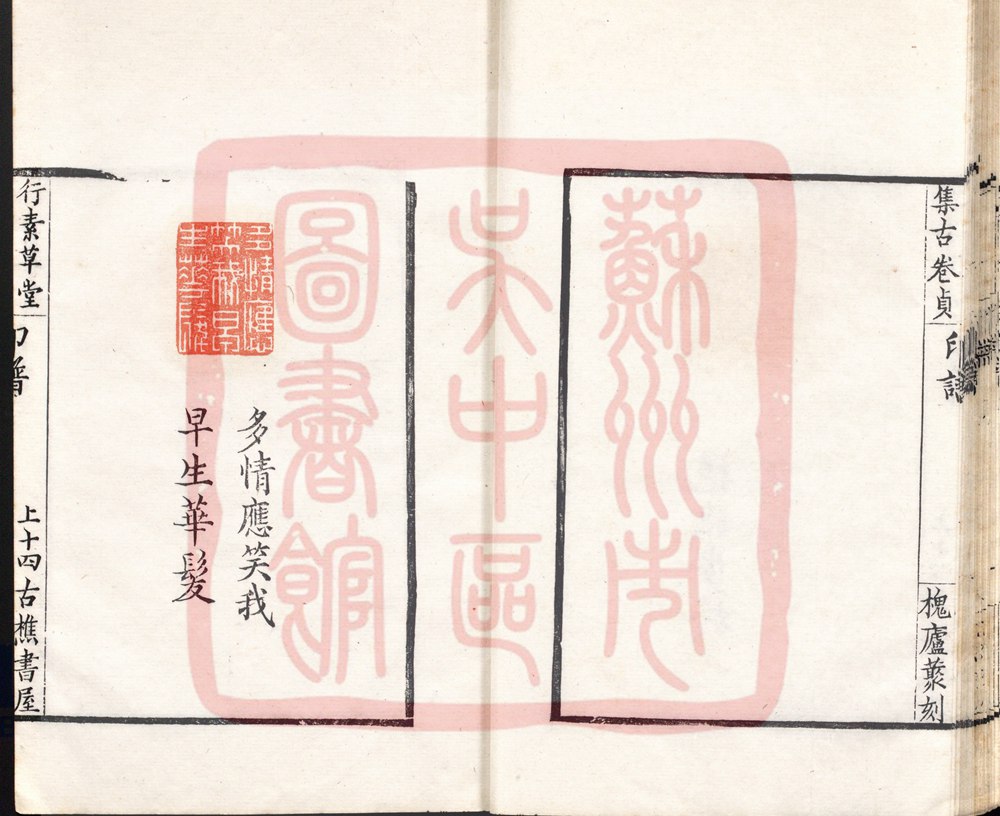 集古卷貞
印譜
槐廬叢刻
蘇州市
吳中區
圖書館
多情應
笑我早
生華髮
多情應笑我
早生華髮
行素草堂
印譜
上十四古樵書屋